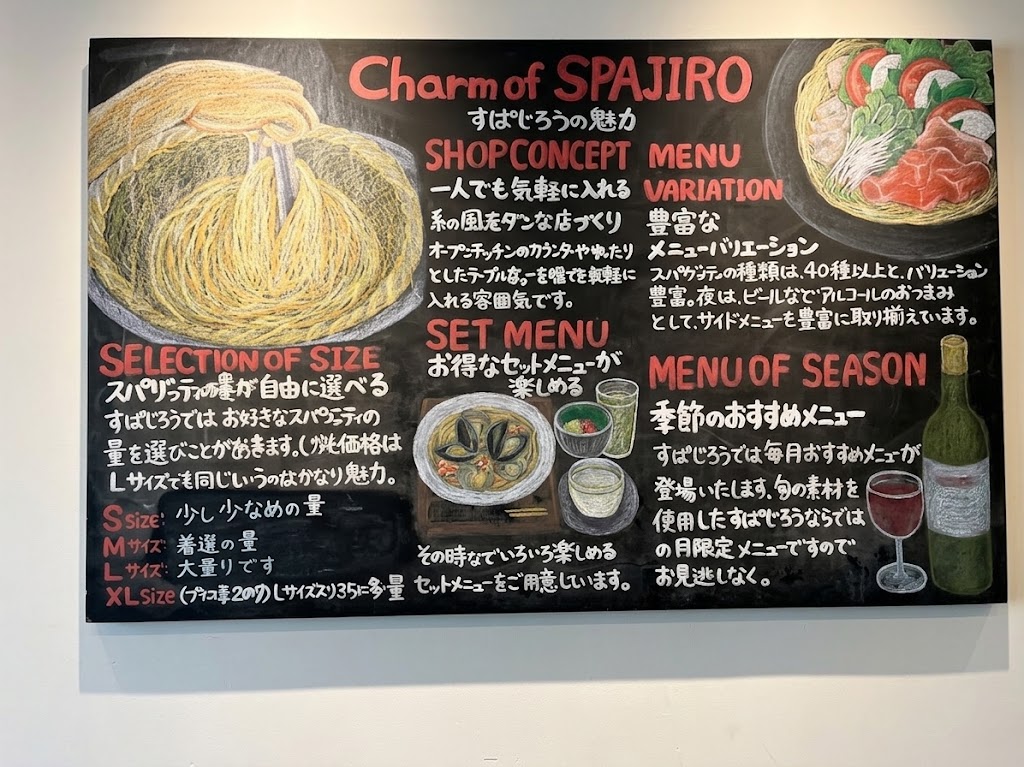 Charm of SPAJIRO
すぱじろうの魅力
SELECTION OF SIZE
が自由に選べる
すぱじろうでは お好きなスパ
量を選びことが
Lサイズでも同じ かなり魅力。
S Size: 少し少なめの量
M サイズ: 着選の量
L サイズ: 大量りです
XL Size Lサイズ
SHOP CONCEPT
一人でも気軽に入れる
な店づくり
オープン のカウンターや
としたテーブル 軽に
入れる雰囲気です。
SET MENU
お得なセットメニューが
楽しめる
その時なでいろいろ楽しめる
セットメニューをご用意しています。
MENU
VARIATION
豊富な
メニューバリエーション
の種類は、40種以上と、バリエーション
豊富。夜は、ビールなどアルコールのおつまみ
として、サイドメニューも豊富に取り揃えています。
MENU OF SEASON
季節のおすすめメニュー
すぱじろうでは毎月おすすめメニューが
登場いたします、旬の素材を
使用したすぱじろうならでは
の月限定メニューですので
お見逃しなく。